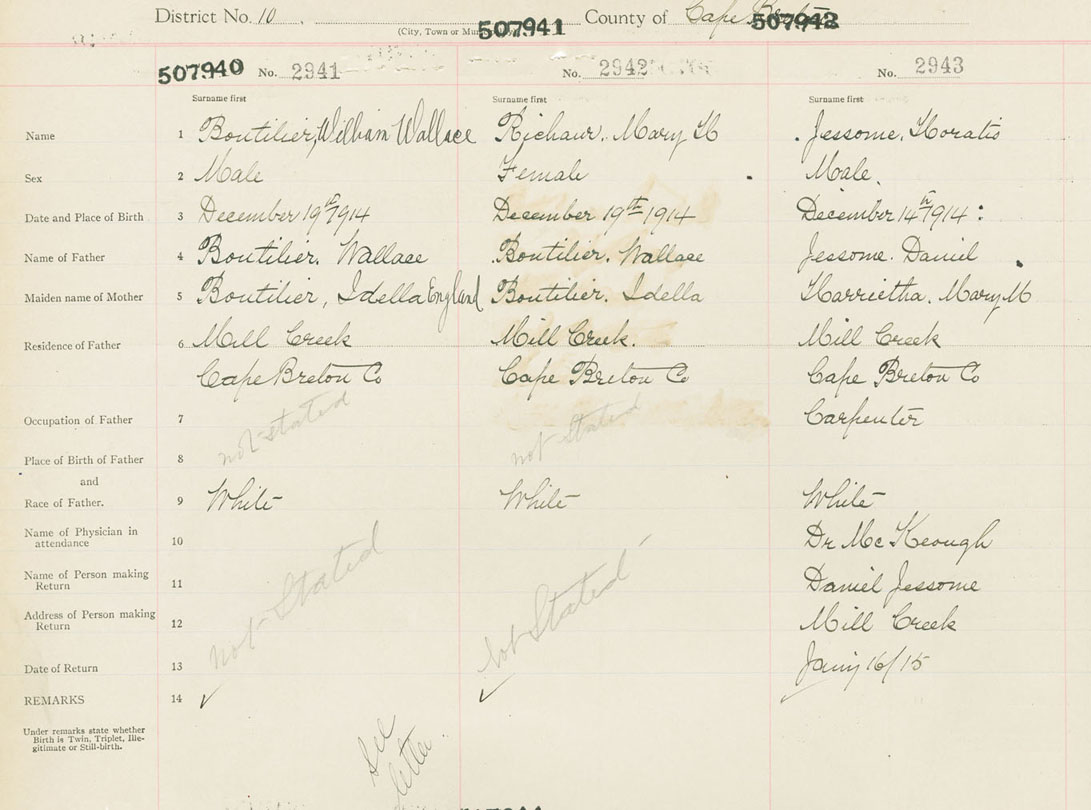 District No. 10 County of Cape Breton
(City, Town or Municipality)
507941
507942
507940 No. 2941 No. 2942 No. 2943
Surname first Surname first Surname first
Name 1 Boutilier, William Wallace Richaur. Mary H Jessome. Horatio
Sex 2 Male Female Male.
Date and Place of Birth 3 December 19th 1914 December 19th 1914 December 14th 1914
Name of Father 4 Boutilier. Wallace Boutilier. Wallace Jessome. Daniel
Maiden name of Mother 5 Boutilier, Idella England Boutilier. Idella Harrietha. Mary M
Residence of Father 6 Mill Creek Mill Creek. Mill Creek
Cape Breton Co Cape Breton Co Cape Breton Co
Occupation of Father 7 not stated not stated Carpenter
Place of Birth of Father 8
and
Race of Father. 9 White White White
Name of Physician in attendance 10 Dr Mc Keough
Name of Person making Return 11 not Stated not Stated Daniel Jessome
Address of Person making Return 12 Mill Creek
Date of Return 13 Jany 16/15
REMARKS 14
Under remarks state whether
Birth is Twin, Triplet, Ille-
gitimate or Still-birth.
See
letter